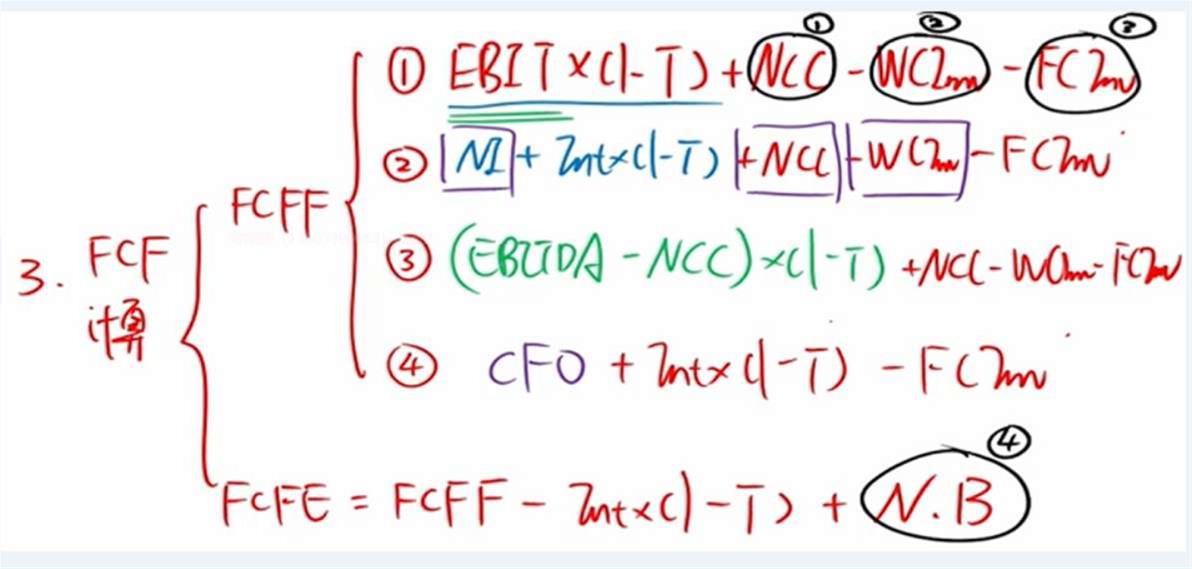 ① ② ③
① EBIT×(1-T)+NCC-WCInv-FCInv
② NI+Int×(1-T)+NCC-WCInv-FCInv
FCFF
③ (EBITDA-NCC)×(1-T)+NCC-WCInv-FCInv
3. FCF
计算
④ CFO+Int×(1-T)-FCInv
④
FCFE=FCFF-Int×(1-T)+N.B